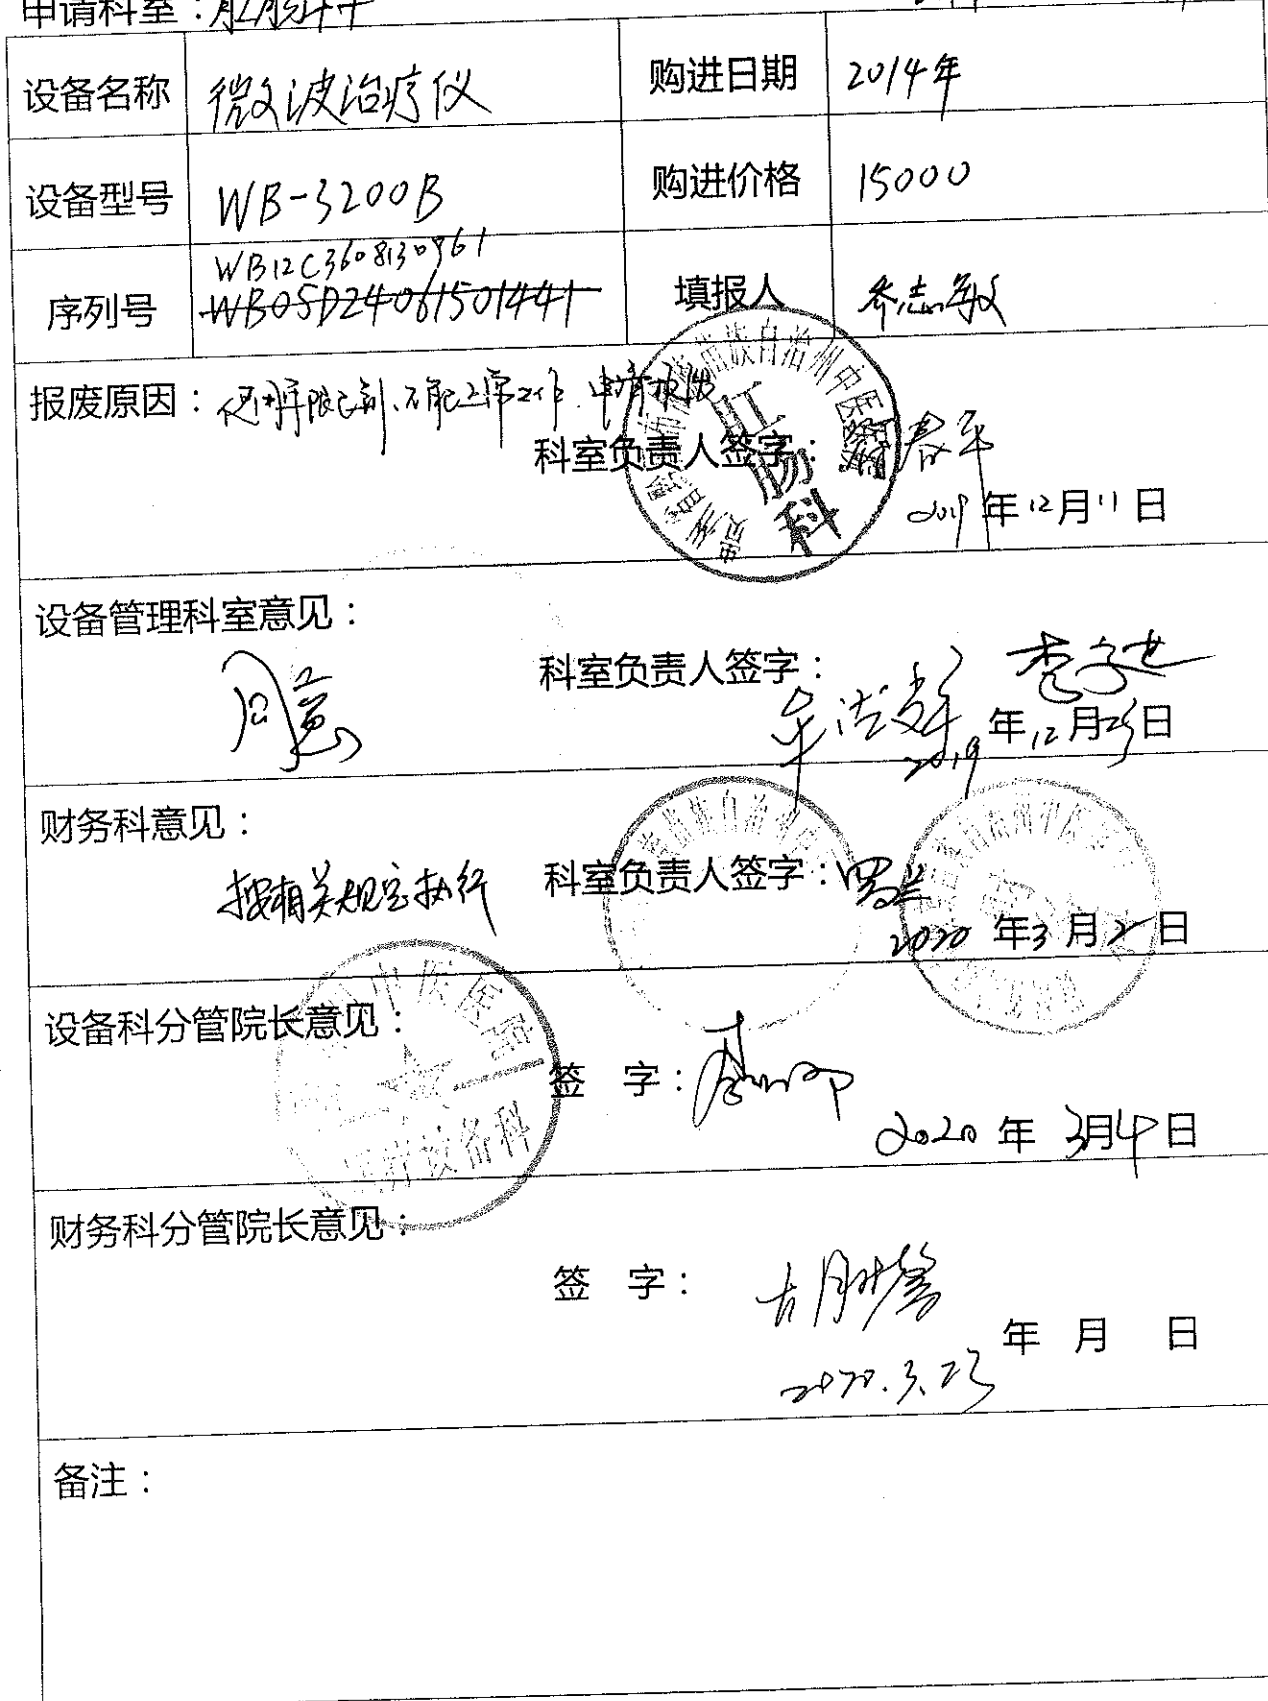 申请科室：肛肠科
设备名称 微波治疗仪 购进日期 2014年
设备型号 WB-3200B 购进价格 15000
WB12C3608130961
序列号 WB05D24061501441 填报人 乔志敏
报废原因：使用年限已到、不能正常工作、申请报废
科室负责人签字： 春平
2019年12月11日
肛肠科
设备管理科室意见：
同意
科室负责人签字：
2019年12月25日
财务科意见：
按相关规定执行 科室负责人签字：
2020年3月2日
设备科分管院长意见：
签 字：
2020年3月4日
中医医院
医疗设备科
财务科分管院长意见：
签 字：
年 月 日
2020.3.23
备注：